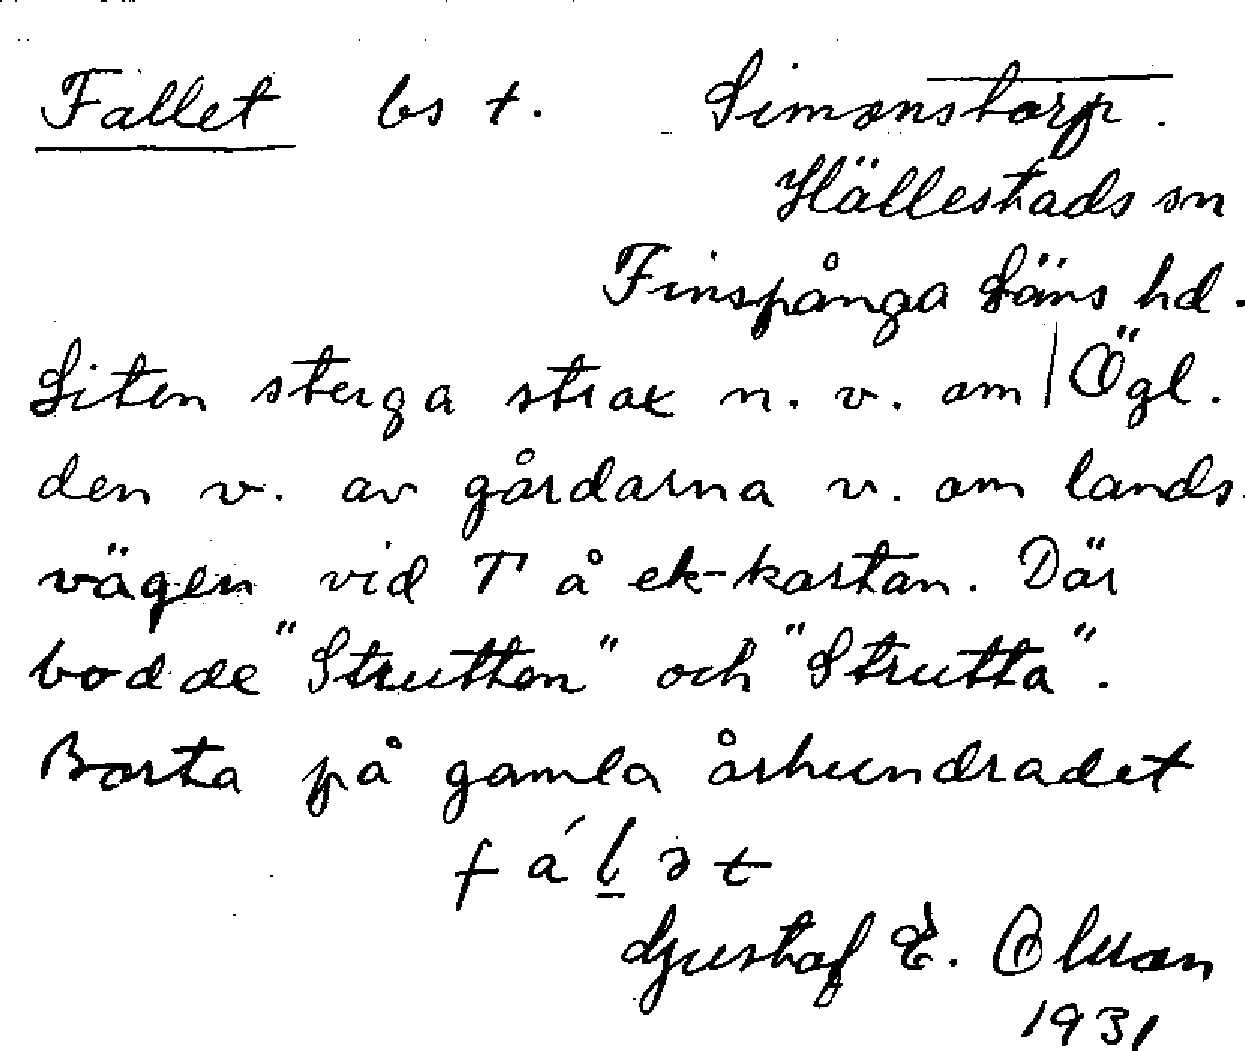 Fallet bs t. Simonstorp.
Hällestads sn
Finspånga läns hd.
Liten stuga strax n. v. om | Ögl.
den v. av gårdarna v. om lands
vägen vid T å ek-kartan. Där
bodde "Strutten" och "Strutta".
Borta på gamla århundradet
fáḻət
Gustaf E. Olsson
1931